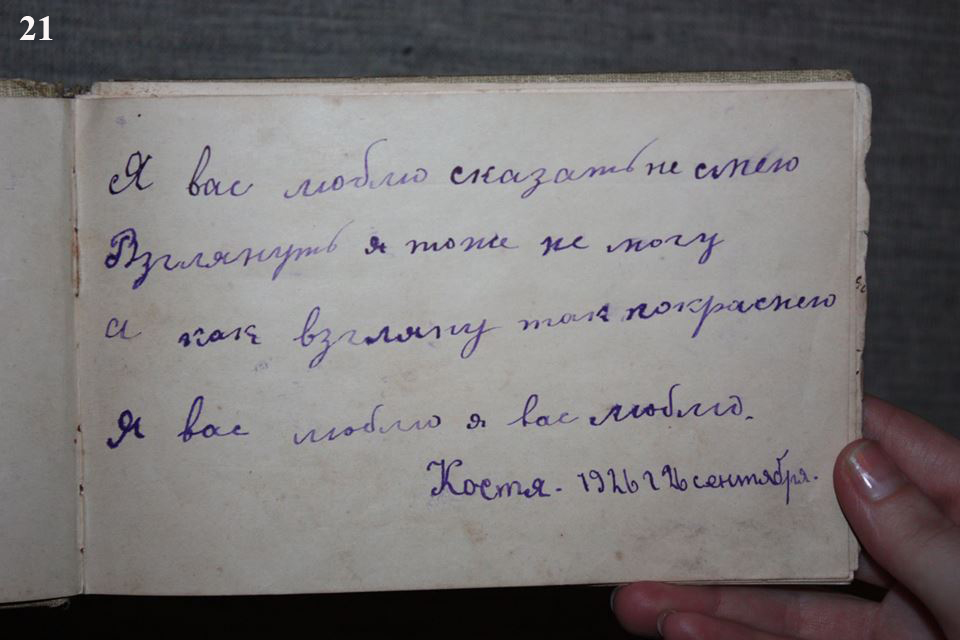 21
Я вас люблю сказать не смею
Взглянуть я тоже не могу
а как взгляну так покраснею
Я вас люблю я вас люблю.
Костя. 1926 г 26 сентября.